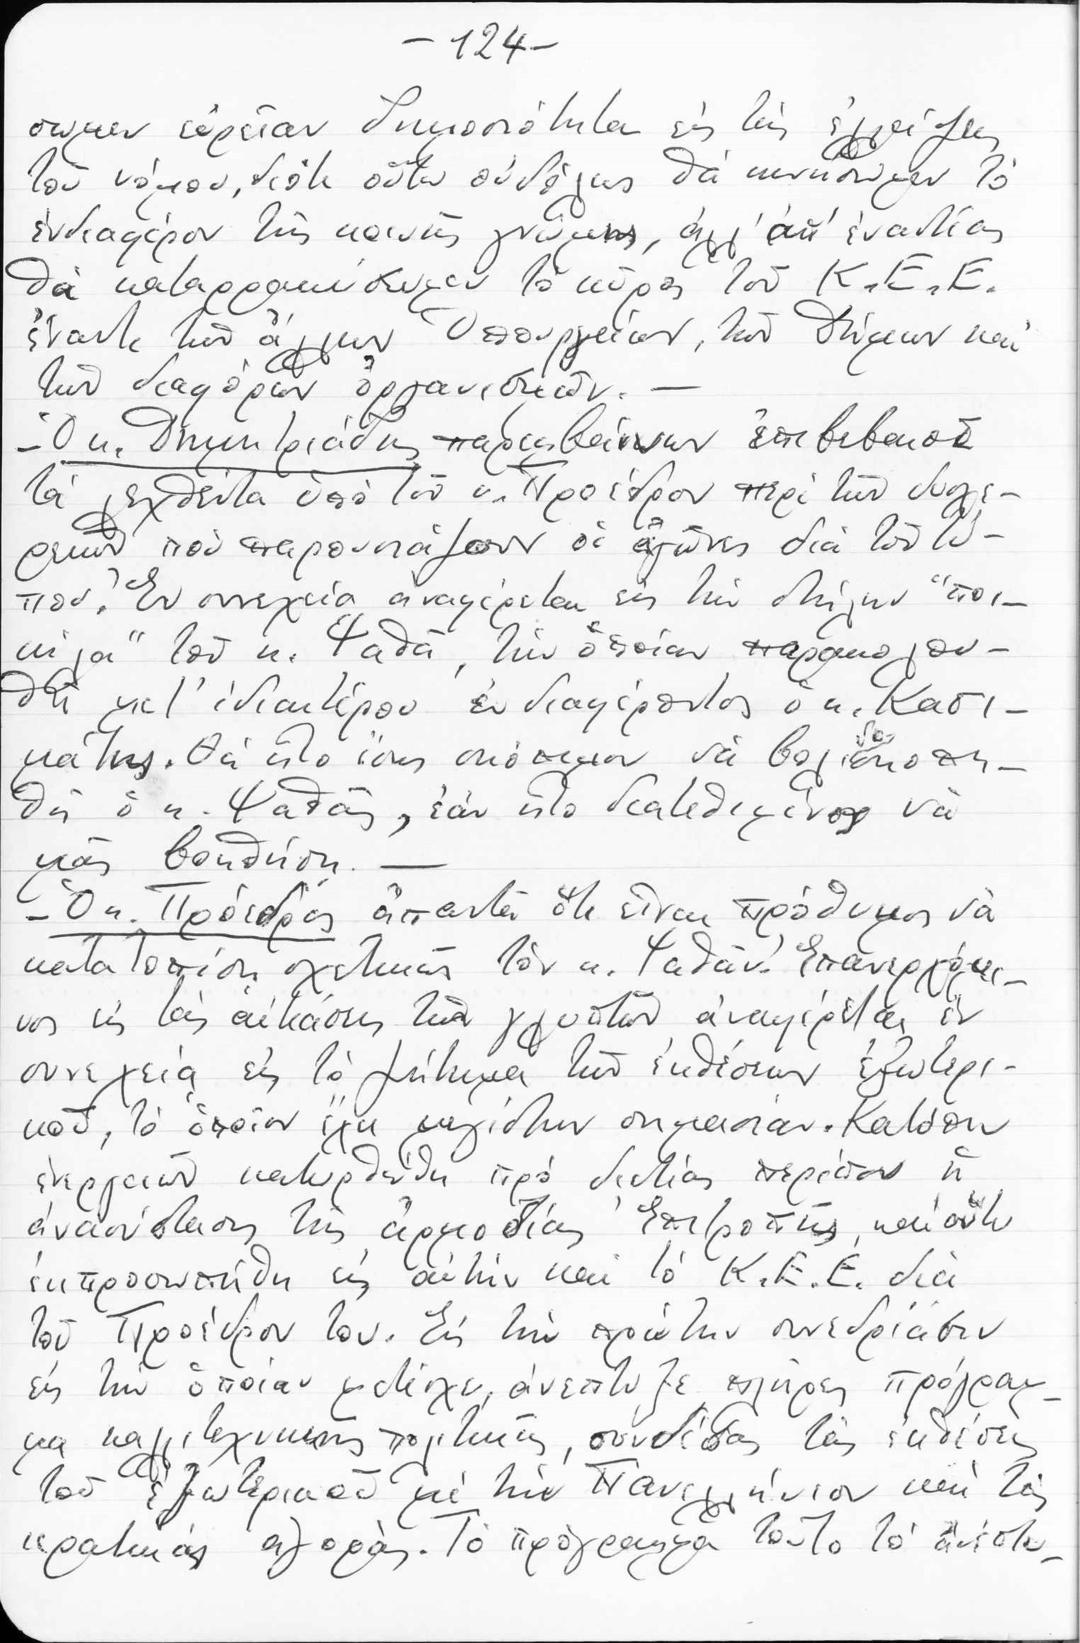 - 124 -
σωμεν εὐρεῖαν δημοσιότητα εἰς τὰς ἐλλείψεις
τοῦ νόμου, διότι οὕτω οὐδόλως θά κινήσωμεν τό
ἐνδιαφέρον τῆς κοινῆς γνώμης, ἀλλ' ἀπ' ἐναντίας
θά καταρρακώσωμεν τό κῦρος τοῦ Κ.Ε.Ε.
ἔναντι τῶν ἄλλων Ὑπουργείων, τῶν Δήμων καί
τῶν διαφόρων ὀργανισμῶν. —
- Ὁ κ. Δημητριάδης παρεμβαίνων ἐπιβεβαιοῖ
τά λεχθέντα ὑπό τοῦ κ. Προέδρου περί τῶν δυσχε-
ρειῶν πού παρουσιάζουν οἱ ἀγῶνες διά τοῦ τύ-
που. Ἐν συνεχείᾳ ἀναφέρεται εἰς τήν στήλην "ποι-
κίλα" τοῦ κ. Ψαθᾶ, τήν ὁποίαν παρακολου-
θεῖ μετ' ἰδιαιτέρου ἐνδιαφέροντος ὁ κ. Κασι-
μάτης. Θά ἦτο ἴσως σκόπιμον νά βολιδοσκοπη-
θῇ ὁ κ. Ψαθᾶς, ἐάν ἦτο διατεθειμένος νά
μᾶς βοηθήσῃ. —
- Ὁ κ. Πρόεδρος ἀπαντᾶ ὅτι εἶναι πρόθυμος νά
κατατοπίσῃ σχετικῶς τόν κ. Ψαθᾶν. Ἐπανερχόμε-
νος εἰς τάς αἰτιάσεις τῶν γλυπτῶν ἀναφέρεται ἐν
συνεχείᾳ εἰς τό ζήτημα τῶν ἐκθέσεων ἐξωτερι-
κοῦ, τό ὁποῖον ἔχει μεγίστην σημασίαν. Κατόπιν
ἐνεργειῶν κατωρθώθη πρό διετίας περίπου ἡ
ἀνασύστασις τῆς ἁρμοδίας Ἐπιτροπῆς, καί οὕτω
ἐκπροσωπήθη εἰς αὐτήν καί τό Κ.Ε.Ε. διά
τοῦ Προέδρου του. Εἰς τήν πρώτην συνεδρίασιν
εἰς τήν ὁποίαν μετέσχε, ἀνέπτυξε πλῆρες πρόγραμ-
μα καλλιτεχνικῆς πολιτικῆς, συνδέσας τάς ἐκθέσεις
τοῦ ἐξωτερικοῦ μέ τήν Πανελλήνιον καί τάς
κρατικάς ἀγοράς. Τό πρόγραμμα τοῦτο τό